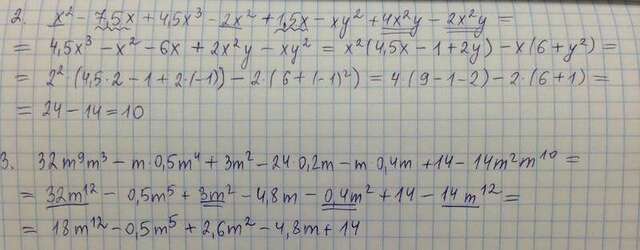 2. x² - 7,5x + 4,5x³ - 2x² + 1,5x - xy² + 4x²y - 2x²y =
= 4,5x³ - x² - 6x + 2x²y - xy² = x²(4,5x - 1 + 2y) - x(6 + y²) =
= 2²(4,5·2 - 1 + 2·(-1)) - 2·(6 + (-1)²) = 4·(9 - 1 - 2) - 2·(6 + 1) =
= 24 - 14 = 10
3. 32m⁹m³ - m·0,5m⁴ + 3m² - 24·0,2m - m·0,4m + 14 - 14m²m¹⁰ =
= 32m¹² - 0,5m⁵ + 3m² - 4,8m - 0,4m² + 14 - 14m¹² =
= 18m¹² - 0,5m⁵ + 2,6m² - 4,8m + 14